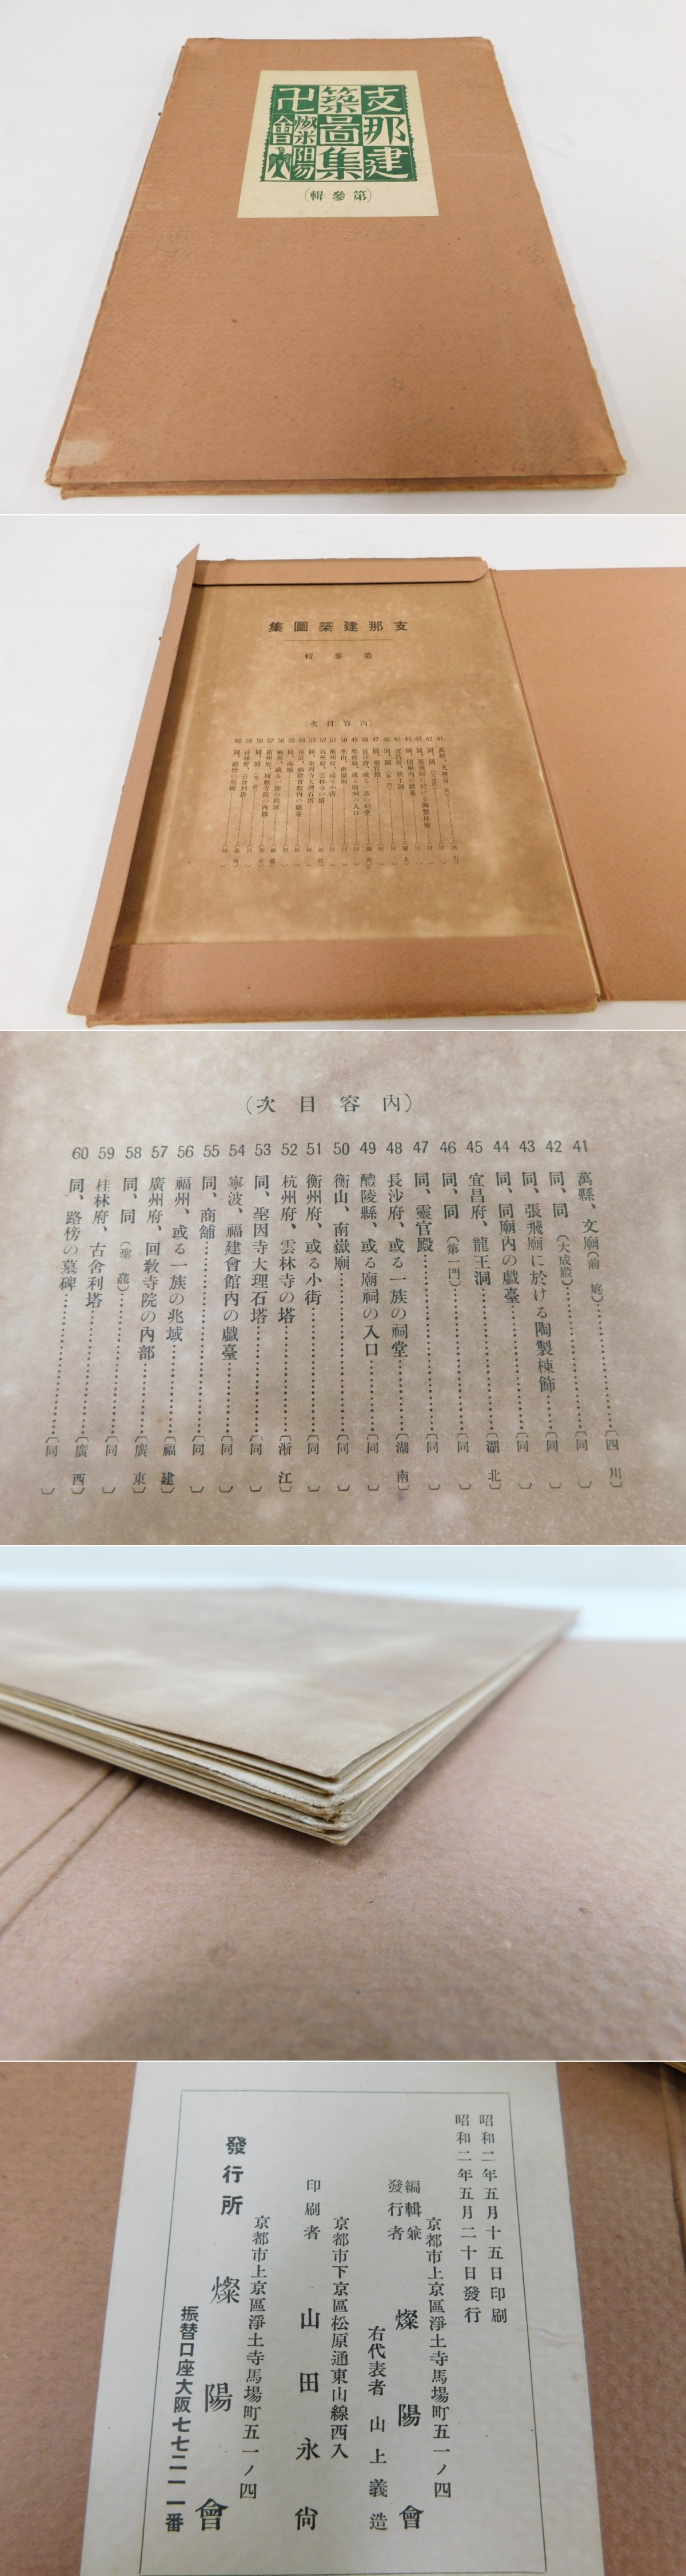 支那建
築圖集
卍 燦陽
會
（第參輯）
支那建築圖集
第參輯
（內容目次）
（內容目次）
41 萬縣、文廟（前庭）〔四川〕
42 同、同（大成殿）〔同〕
43 同、張飛廟に於ける陶製棟飾〔同〕
44 同、同廟內の戲臺〔同〕
45 宜昌府、龍王洞〔湖北〕
46 同、同（第一門）〔同〕
47 同、靈官殿〔同〕
48 長沙府、或る一族の祠堂〔湖南〕
49 醴陵縣、或る廟祠の入口〔同〕
50 衡山、南嶽廟〔同〕
51 衡州府、或る小街〔同〕
52 杭州府、雲林寺の塔〔浙江〕
53 同、聖因寺大理石塔〔同〕
54 寧波、福建會館內の戲臺〔同〕
55 同、商舖〔同〕
56 福州、或る一族の兆域〔福建〕
57 廣州府、回敎寺院の內部〔廣東〕
58 同、同（聖龕）〔同〕
59 桂林府、古舍利塔〔廣西〕
60 同、路傍の墓碑〔同〕
昭和二年五月十五日印刷
昭和二年五月二十日發行
京都市上京區淨土寺馬場町五一ノ四
編輯兼發行者 燦陽會
右代表者 山上義造
京都市下京區松原通東山線西入
印刷者 山田永尙
京都市上京區淨土寺馬場町五一ノ四
發行所 燦陽會
振替口座大阪七七二一一番